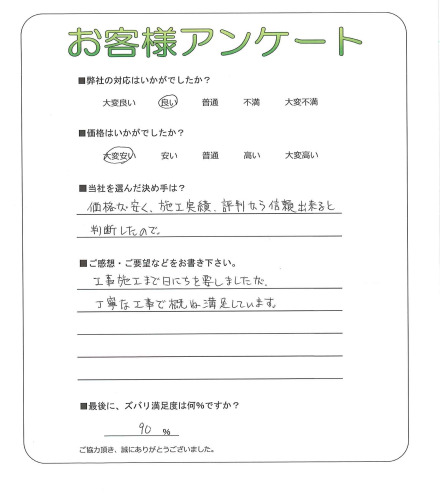 お客様アンケート
■弊社の対応はいかがでしたか？
大変良い 良い 普通 不満 大変不満
■価格はいかがでしたか？
大変安い 安い 普通 高い 大変高い
■当社を選んだ決め手は？
価格が安く、施工実績、評判なら信頼出来ると
判断したので。
■ご感想・ご要望などをお書き下さい。
工事施工まで日にちを要しましたが、
丁寧な工事で概ね満足しています。
■最後に、ズバリ満足度は何％ですか？
90 ％
ご協力頂き、誠にありがとうございました。